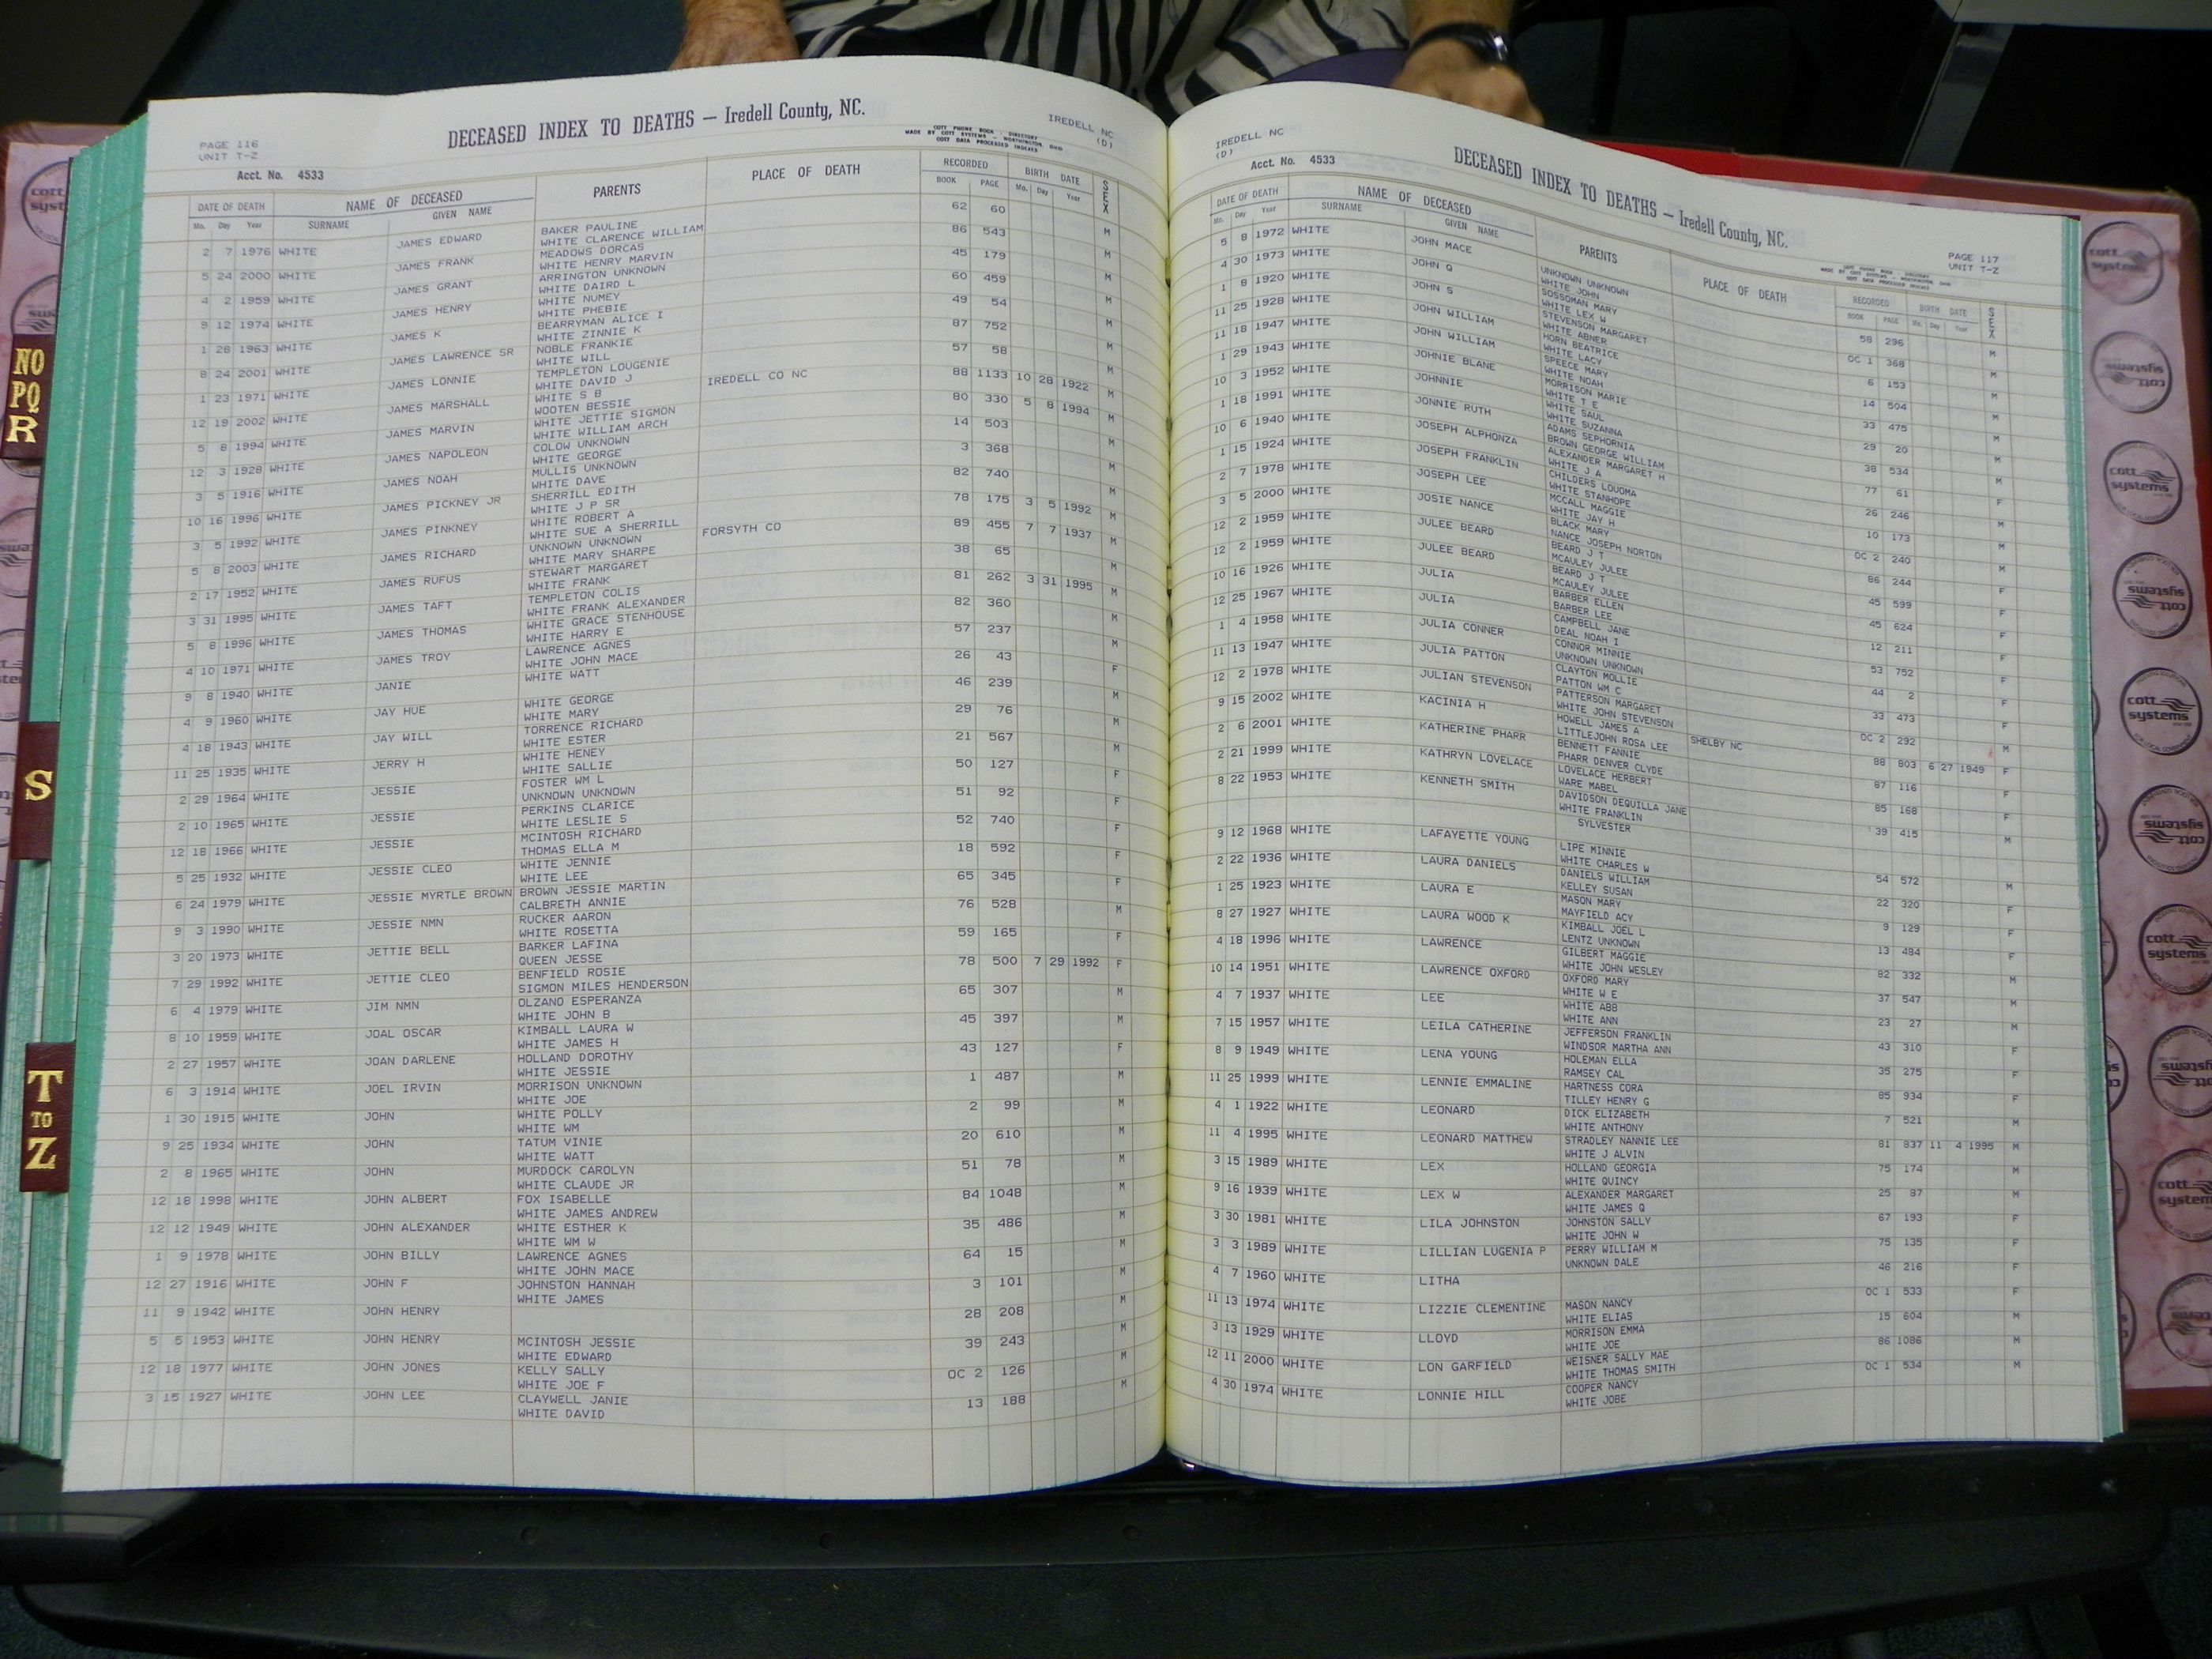 PAGE 116
UNIT T-Z
DECEASED INDEX TO DEATHS — Iredell County, NC.
COTT PHONE BOOK - DIRECTORY
MADE BY COTT SYSTEMS - WORTHINGTON, OHIO
COTT DATA PROCESSED INDEXES
IREDELL NC
(D)
Acct. No. 4533
DATE OF DEATH NAME OF DECEASED PARENTS PLACE OF DEATH RECORDED BIRTH DATE SEX
Mo. Day Year SURNAME GIVEN NAME BOOK PAGE Mo. Day Year
2 7 1976 WHITE JAMES EDWARD BAKER PAULINE 62 60 M
WHITE CLARENCE WILLIAM
5 24 2000 WHITE JAMES FRANK MEADOWS DORCAS 86 543 M
WHITE HENRY MARVIN
4 2 1959 WHITE JAMES GRANT ARRINGTON UNKNOWN 45 179 M
WHITE DAIRD L
9 12 1974 WHITE JAMES HENRY WHITE NUMEY 60 459 M
WHITE PHEBIE
1 28 1963 WHITE JAMES K BEARRYMAN ALICE I 49 54 M
WHITE ZINNIE K
8 24 2001 WHITE JAMES LAWRENCE SR NOBLE FRANKIE 87 752 M
WHITE WILL
1 23 1971 WHITE JAMES LONNIE TEMPLETON LOUGENIE 57 58 M
WHITE DAVID J
12 19 2002 WHITE JAMES MARSHALL WHITE S B IREDELL CO NC 88 1133 10 28 1922 M
WOOTEN BESSIE
5 8 1994 WHITE JAMES MARVIN WHITE JETTIE SIGMON 80 330 5 8 1994 M
WHITE WILLIAM ARCH
12 3 1928 WHITE JAMES NAPOLEON COLOW UNKNOWN 14 503 M
WHITE GEORGE
3 5 1916 WHITE JAMES NOAH MULLIS UNKNOWN 3 368 M
WHITE DAVE
10 16 1996 WHITE JAMES PICKNEY JR SHERRILL EDITH 82 740 M
WHITE J P SR
3 5 1992 WHITE JAMES PINKNEY WHITE ROBERT A 78 175 3 5 1992 M
WHITE SUE A SHERRILL
5 8 2003 WHITE JAMES RICHARD UNKNOWN UNKNOWN FORSYTH CO 89 455 7 7 1937 M
WHITE MARY SHARPE
2 17 1952 WHITE JAMES RUFUS STEWART MARGARET 38 65 M
WHITE FRANK
3 31 1995 WHITE JAMES TAFT TEMPLETON COLIS 81 262 3 31 1995 M
WHITE FRANK ALEXANDER
5 8 1996 WHITE JAMES THOMAS WHITE GRACE STENHOUSE 82 360 M
WHITE HARRY E
4 10 1971 WHITE JAMES TROY LAWRENCE AGNES 57 237 M
WHITE JOHN MACE
9 8 1940 WHITE JANIE WHITE WATT 26 43 F
4 9 1960 WHITE JAY HUE WHITE GEORGE 46 239 M
WHITE MARY
4 18 1943 WHITE JAY WILL TORRENCE RICHARD 29 76 M
WHITE ESTER
11 25 1935 WHITE JERRY H WHITE HENEY 21 567 M
WHITE SALLIE
2 29 1964 WHITE JESSIE FOSTER WM L 50 127 F
UNKNOWN UNKNOWN
2 10 1965 WHITE JESSIE PERKINS CLARICE 51 92 F
WHITE LESLIE S
12 18 1966 WHITE JESSIE MCINTOSH RICHARD 52 740 F
THOMAS ELLA M
5 25 1932 WHITE JESSIE CLEO WHITE JENNIE 18 592 F
WHITE LEE
6 24 1979 WHITE JESSIE MYRTLE BROWN BROWN JESSIE MARTIN 65 345 F
CALBRETH ANNIE
9 3 1990 WHITE JESSIE NMN RUCKER AARON 76 528 M
WHITE ROSETTA
3 20 1973 WHITE JETTIE BELL BARKER LAFINA 59 165 F
QUEEN JESSE
7 29 1992 WHITE JETTIE CLEO BENFIELD ROSIE 78 500 7 29 1992 F
SIGMON MILES HENDERSON
6 4 1979 WHITE JIM NMN OLZANO ESPERANZA 65 307 M
WHITE JOHN B
8 10 1959 WHITE JOAL OSCAR KIMBALL LAURA W 45 397 M
WHITE JAMES H
2 27 1957 WHITE JOAN DARLENE HOLLAND DOROTHY 43 127 F
WHITE JESSIE
6 3 1914 WHITE JOEL IRVIN MORRISON UNKNOWN 1 487 M
WHITE JOE
1 30 1915 WHITE JOHN WHITE POLLY 2 99 M
WHITE WM
9 25 1934 WHITE JOHN TATUM VINIE 20 610 M
WHITE WATT
2 8 1965 WHITE JOHN MURDOCK CAROLYN 51 78 M
WHITE CLAUDE JR
12 18 1998 WHITE JOHN ALBERT FOX ISABELLE 84 1048 M
WHITE JAMES ANDREW
12 12 1949 WHITE JOHN ALEXANDER WHITE ESTHER K 35 486 M
WHITE WM W
1 9 1978 WHITE JOHN BILLY LAWRENCE AGNES 64 15 M
WHITE JOHN MACE
12 27 1916 WHITE JOHN F JOHNSTON HANNAH 3 101 M
WHITE JAMES
11 9 1942 WHITE JOHN HENRY 28 208 M
5 5 1953 WHITE JOHN HENRY MCINTOSH JESSIE 39 243 M
WHITE EDWARD
12 18 1977 WHITE JOHN JONES KELLY SALLY OC 2 126 M
WHITE JOE F
3 15 1927 WHITE JOHN LEE CLAYWELL JANIE 13 188 M
WHITE DAVID
IREDELL NC
(D)
Acct. No. 4533
DECEASED INDEX TO DEATHS — Iredell County, NC.
PAGE 117
UNIT T-Z
DATE OF DEATH NAME OF DECEASED PARENTS PLACE OF DEATH RECORDED BIRTH DATE SEX
Mo. Day Year SURNAME GIVEN NAME BOOK PAGE Mo. Day Year
5 8 1972 WHITE JOHN MACE UNKNOWN UNKNOWN 58 296 M
WHITE JOHN
4 30 1973 WHITE JOHN Q SOSSOMAN MARY OC 1 368 M
WHITE LEX W
1 8 1920 WHITE JOHN S STEVENSON MARGARET 6 153 M
WHITE ABNER
11 25 1928 WHITE JOHN WILLIAM HORN BEATRICE 14 504 M
WHITE LACY
11 18 1947 WHITE JOHN WILLIAM SPEECE MARY 33 475 M
WHITE NOAH
1 29 1943 WHITE JOHNIE BLANE MORRISON MARIE 29 20 M
WHITE T E
10 3 1952 WHITE JOHNNIE WHITE SAUL 38 534 M
WHITE SUZANNA
1 18 1991 WHITE JONNIE RUTH ADAMS SEPHORNIA 77 61 F
BROWN GEORGE WILLIAM
10 6 1940 WHITE JOSEPH ALPHONZA ALEXANDER MARGARET H 26 246 M
WHITE J A
1 15 1924 WHITE JOSEPH FRANKLIN CHILDERS LOUOMA 10 173 M
WHITE STANHOPE
2 7 1978 WHITE JOSEPH LEE MCCALL MAGGIE OC 2 240 M
WHITE JAY H
3 5 2000 WHITE JOSIE NANCE BLACK MARY 86 244 F
NANCE JOSEPH NORTON
12 2 1959 WHITE JULEE BEARD BEARD J T 45 599 F
MCAULEY JULEE
12 2 1959 WHITE JULEE BEARD BEARD J T 45 624 F
MCAULEY JULEE
10 16 1926 WHITE JULIA BARBER ELLEN 12 211 F
BARBER LEE
12 25 1967 WHITE JULIA CAMPBELL JANE 53 752 F
DEAL NOAH I
1 4 1958 WHITE JULIA CONNER CONNOR MINNIE 44 2 F
UNKNOWN UNKNOWN
11 13 1947 WHITE JULIA PATTON CLAYTON MOLLIE 33 473 F
PATTON WM C
12 2 1978 WHITE JULIAN STEVENSON PATTERSON MARGARET OC 2 292 M
WHITE JOHN STEVENSON
9 15 2002 WHITE KACINIA H HOWELL JAMES A SHELBY NC 88 803 6 27 1949 F
LITTLEJOHN ROSA LEE
2 6 2001 WHITE KATHERINE PHARR BENNETT FANNIE 87 116
PHARR DENVER CLYDE
2 21 1999 WHITE KATHRYN LOVELACE LOVELACE HERBERT 85 168 F
WARE MABEL
8 22 1953 WHITE KENNETH SMITH DAVIDSON DEQUILLA JANE 39 415 M
WHITE FRANKLIN
SYLVESTER
9 12 1968 WHITE LAFAYETTE YOUNG LIPE MINNIE 54 572 M
WHITE CHARLES W
2 22 1936 WHITE LAURA DANIELS DANIELS WILLIAM 22 320 F
KELLEY SUSAN
1 25 1923 WHITE LAURA E MASON MARY 9 129 F
MAYFIELD ACY
8 27 1927 WHITE LAURA WOOD K KIMBALL JOEL L 13 484 F
LENTZ UNKNOWN
4 18 1996 WHITE LAWRENCE GILBERT MAGGIE 82 332 M
WHITE JOHN WESLEY
10 14 1951 WHITE LAWRENCE OXFORD OXFORD MARY 37 547 M
WHITE W E
4 7 1937 WHITE LEE WHITE ABB 23 27 M
WHITE ANN
7 15 1957 WHITE LEILA CATHERINE JEFFERSON FRANKLIN 43 310 F
WINDSOR MARTHA ANN
8 9 1949 WHITE LENA YOUNG HOLEMAN ELLA 35 275 F
RAMSEY CAL
11 25 1999 WHITE LENNIE EMMALINE HARTNESS CORA 85 934 F
TILLEY HENRY G
4 1 1922 WHITE LEONARD DICK ELIZABETH 7 521 M
WHITE ANTHONY
11 4 1995 WHITE LEONARD MATTHEW STRADLEY NANNIE LEE 81 837 11 4 1995 M
WHITE J ALVIN
3 15 1989 WHITE LEX HOLLAND GEORGIA 75 174 M
WHITE QUINCY
9 16 1939 WHITE LEX W ALEXANDER MARGARET 25 87 M
WHITE JAMES Q
3 30 1981 WHITE LILA JOHNSTON JOHNSTON SALLY 67 193 F
WHITE JOHN W
3 3 1989 WHITE LILLIAN LUGENIA P PERRY WILLIAM M 75 135 F
UNKNOWN DALE
4 7 1960 WHITE LITHA 46 216 F
11 13 1974 WHITE LIZZIE CLEMENTINE MASON NANCY OC 1 533 F
WHITE ELIAS
3 13 1929 WHITE LLOYD MORRISON EMMA 15 604 M
WHITE JOE
12 11 2000 WHITE LON GARFIELD WEISNER SALLY MAE 86 1086 M
WHITE THOMAS SMITH
4 30 1974 WHITE LONNIE HILL COOPER NANCY OC 1 534 M
WHITE JOBE
NO
PQ
R
S
T
TO
Z
cott
systems